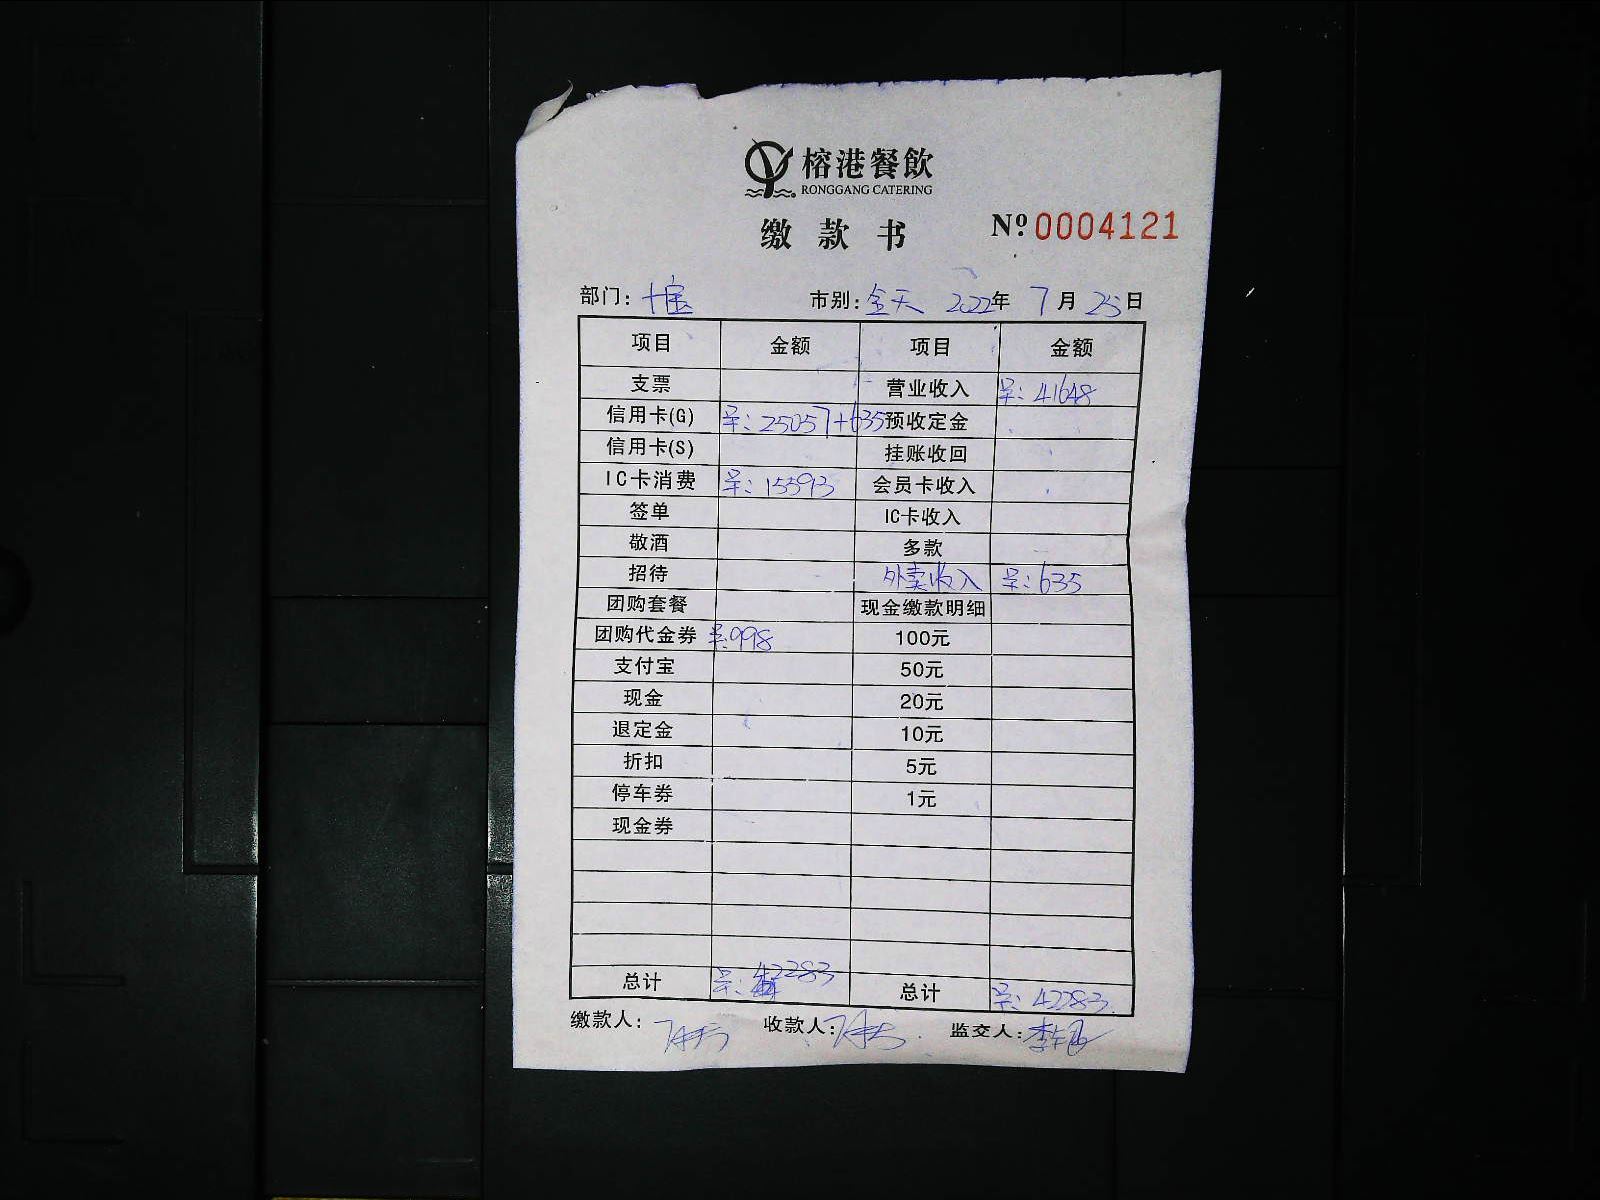 榕港餐飲
RONGGANG CATERING
缴款书 Nº 0004121
部门: 市别: 全天 2022年 7月 25日
项目 金额 项目 金额
支票 营业收入 ¥: 41648
信用卡(G) ¥: 25057+635 预收定金
信用卡(S) 挂账收回
IC卡消费 ¥: 15593 会员卡收入
签单 IC卡收入
敬酒 多款
招待 外卖收入 ¥: 635
团购套餐 现金缴款明细
团购代金券 ¥: 998 100元
支付宝 50元
现金 20元
退定金 10元
折扣 5元
停车券 1元
现金券
总计 ¥: 42283 总计 ¥: 42283
缴款人: 收款人: 监交人: